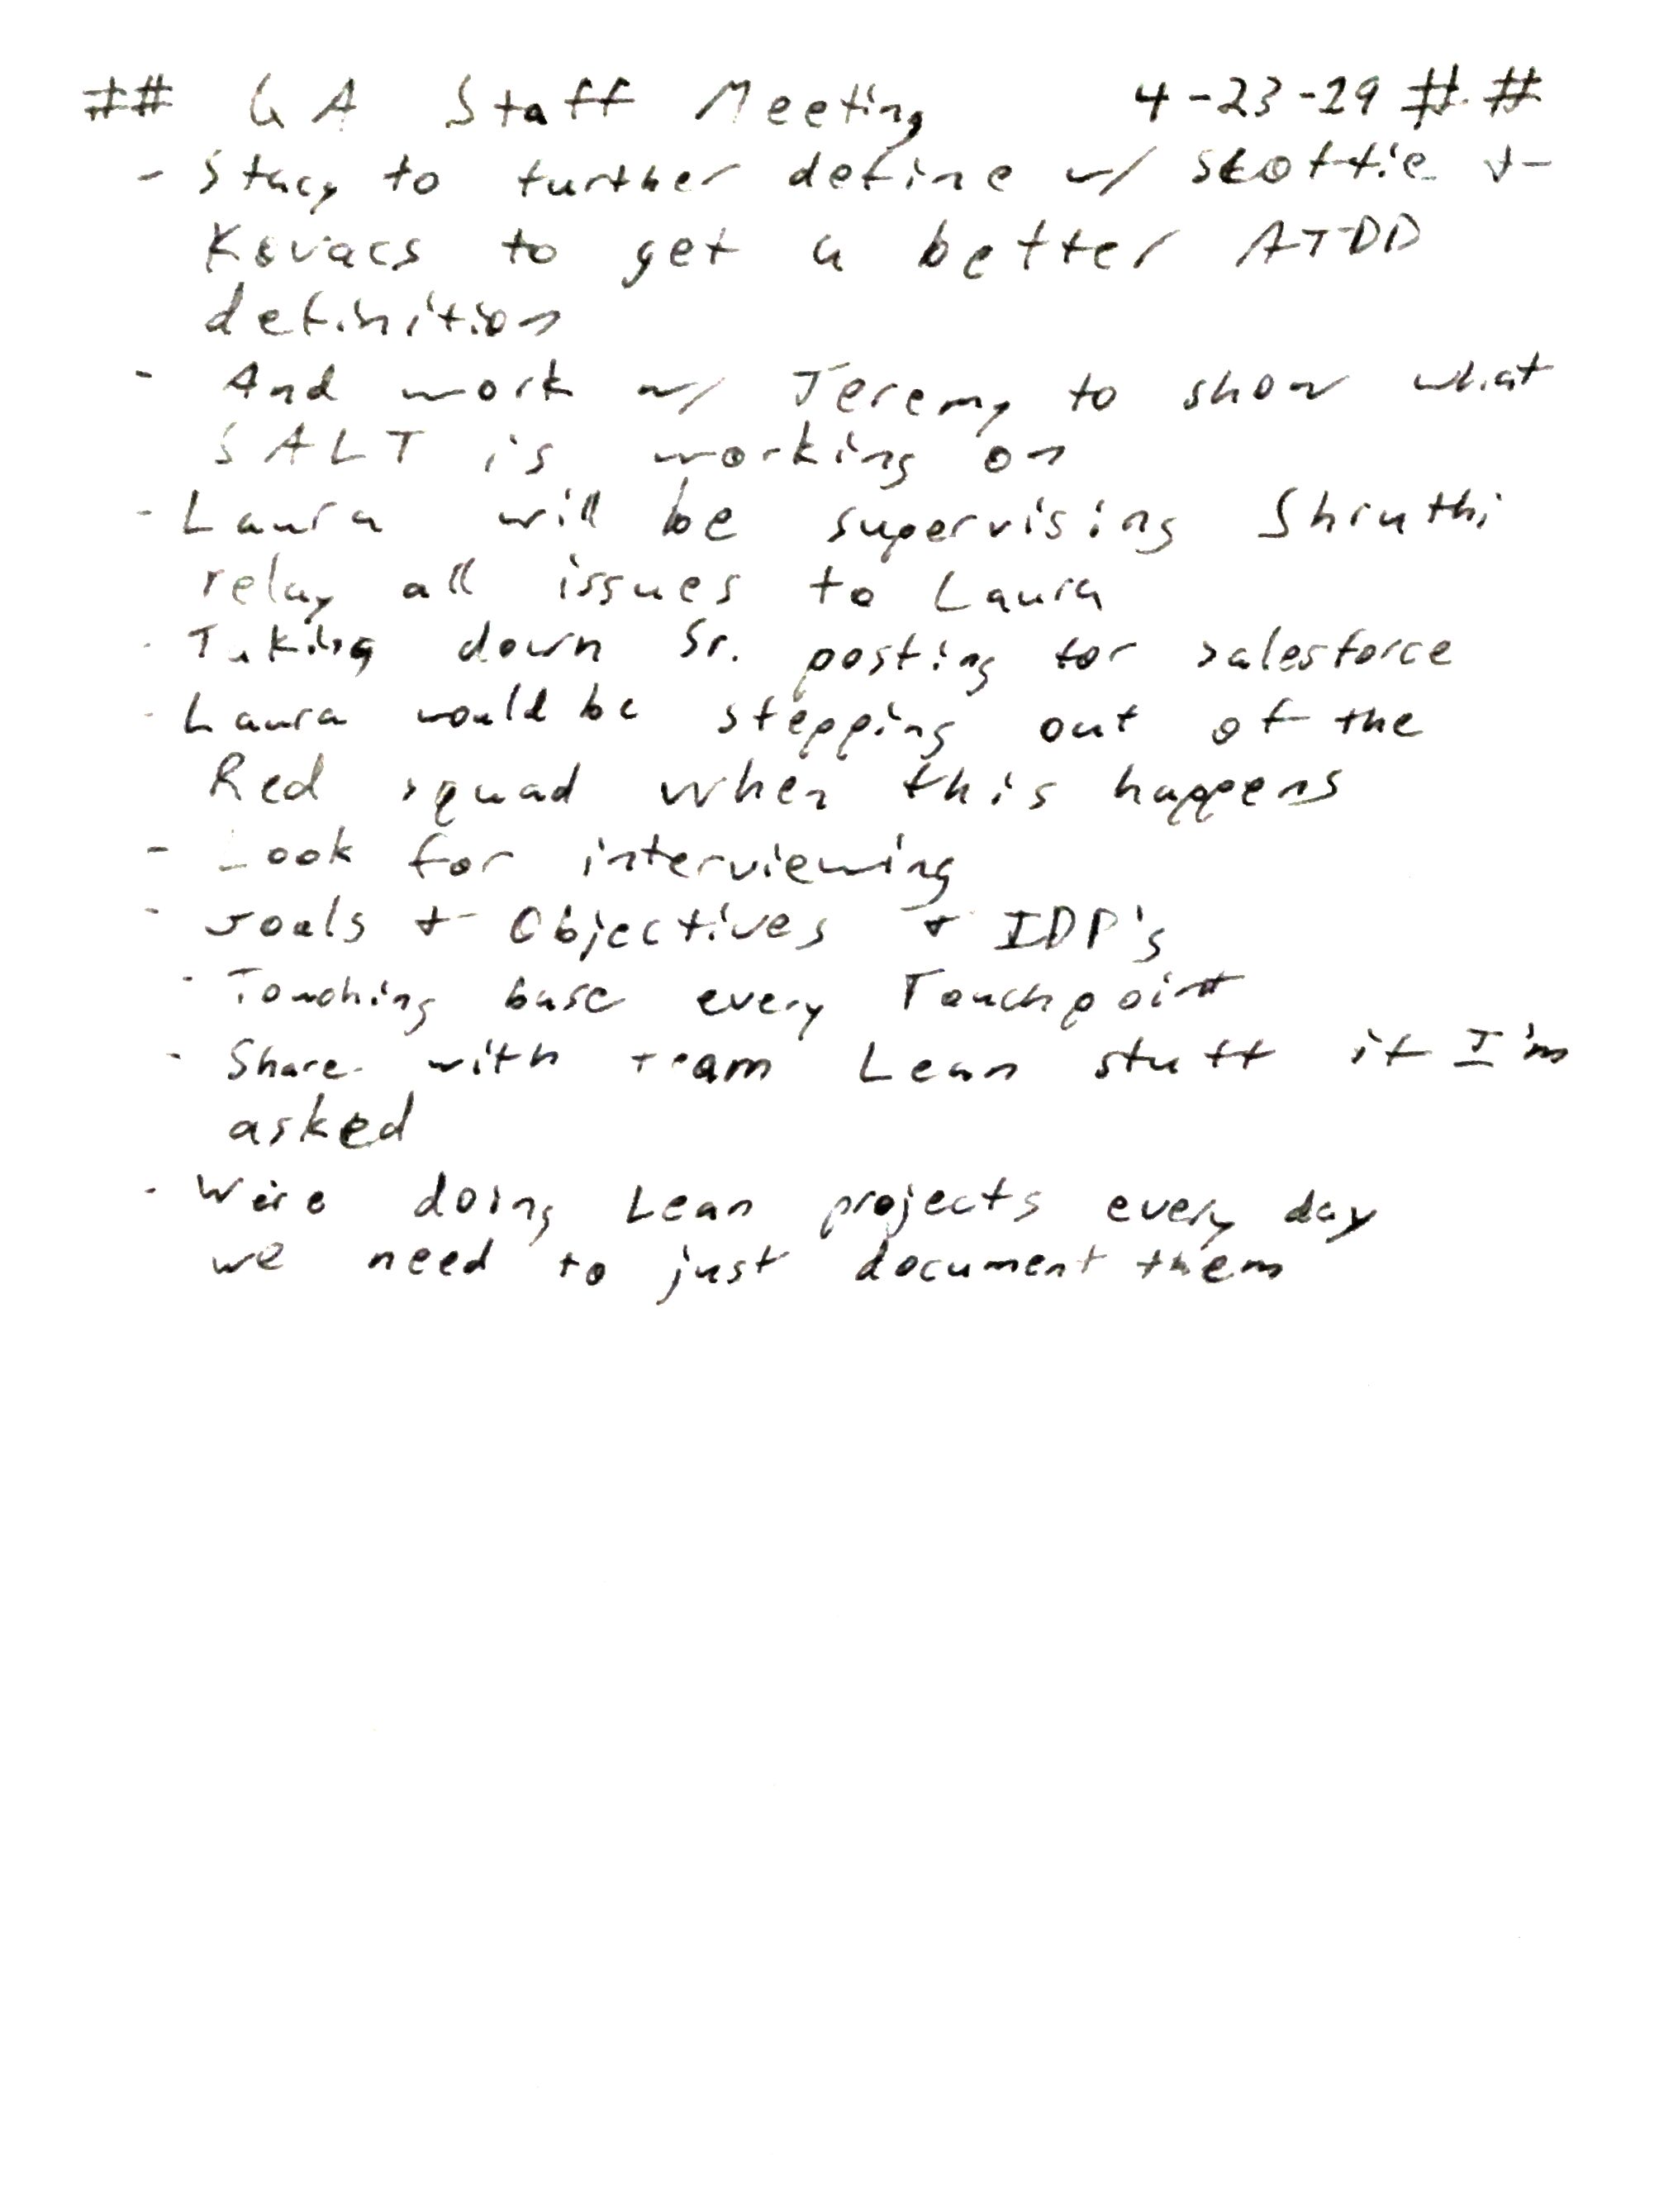 ## QA Staff Meeting 4-23-19 ##
- Stacy to further define w/ Scottie +
Kovacs to get a better ATDD
definition
- And work w/ Jeremy to show what
SALT is working on
- Laura will be supervising Shruthi
relay all issues to Laura
- Taking down Sr. posting for salesforce
- Laura would be stepping out of the
Red squad when this happens
- Look for interviewing
- Goals + Objectives + IDP's
- Touching base every Touchpoint
- Share with team Lean stuff if I'm
asked
- We're doing Lean projects every day
we need to just document them